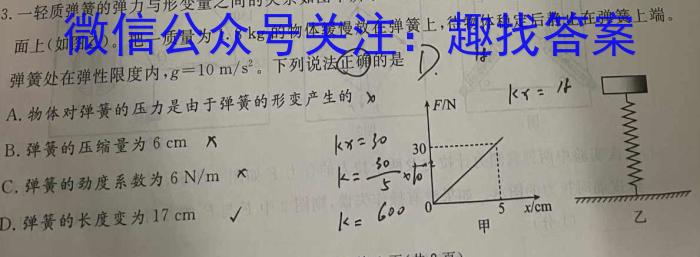 3. 一轻质弹簧的弹力与形变量之间的关系如图
面上(如图乙)。把一质量为 kg的物体缓慢放在弹簧上,待物体稳定后静止在弹簧上端。
微信公众号关注:趣找答案
弹簧处在弹性限度内,g=10 m/s²。下列说法正确的是 D.
18
A. 物体对弹簧的压力是由于弹簧的形变产生的 ×
kx = 18
B. 弹簧的压缩量为 6 cm ×
kx = 30
C. 弹簧的劲度系数为 6 N/m ×
k = 30/5
D. 弹簧的长度变为 17 cm ✓
k = 600
F/N
30
0
5
x/cm
甲
乙